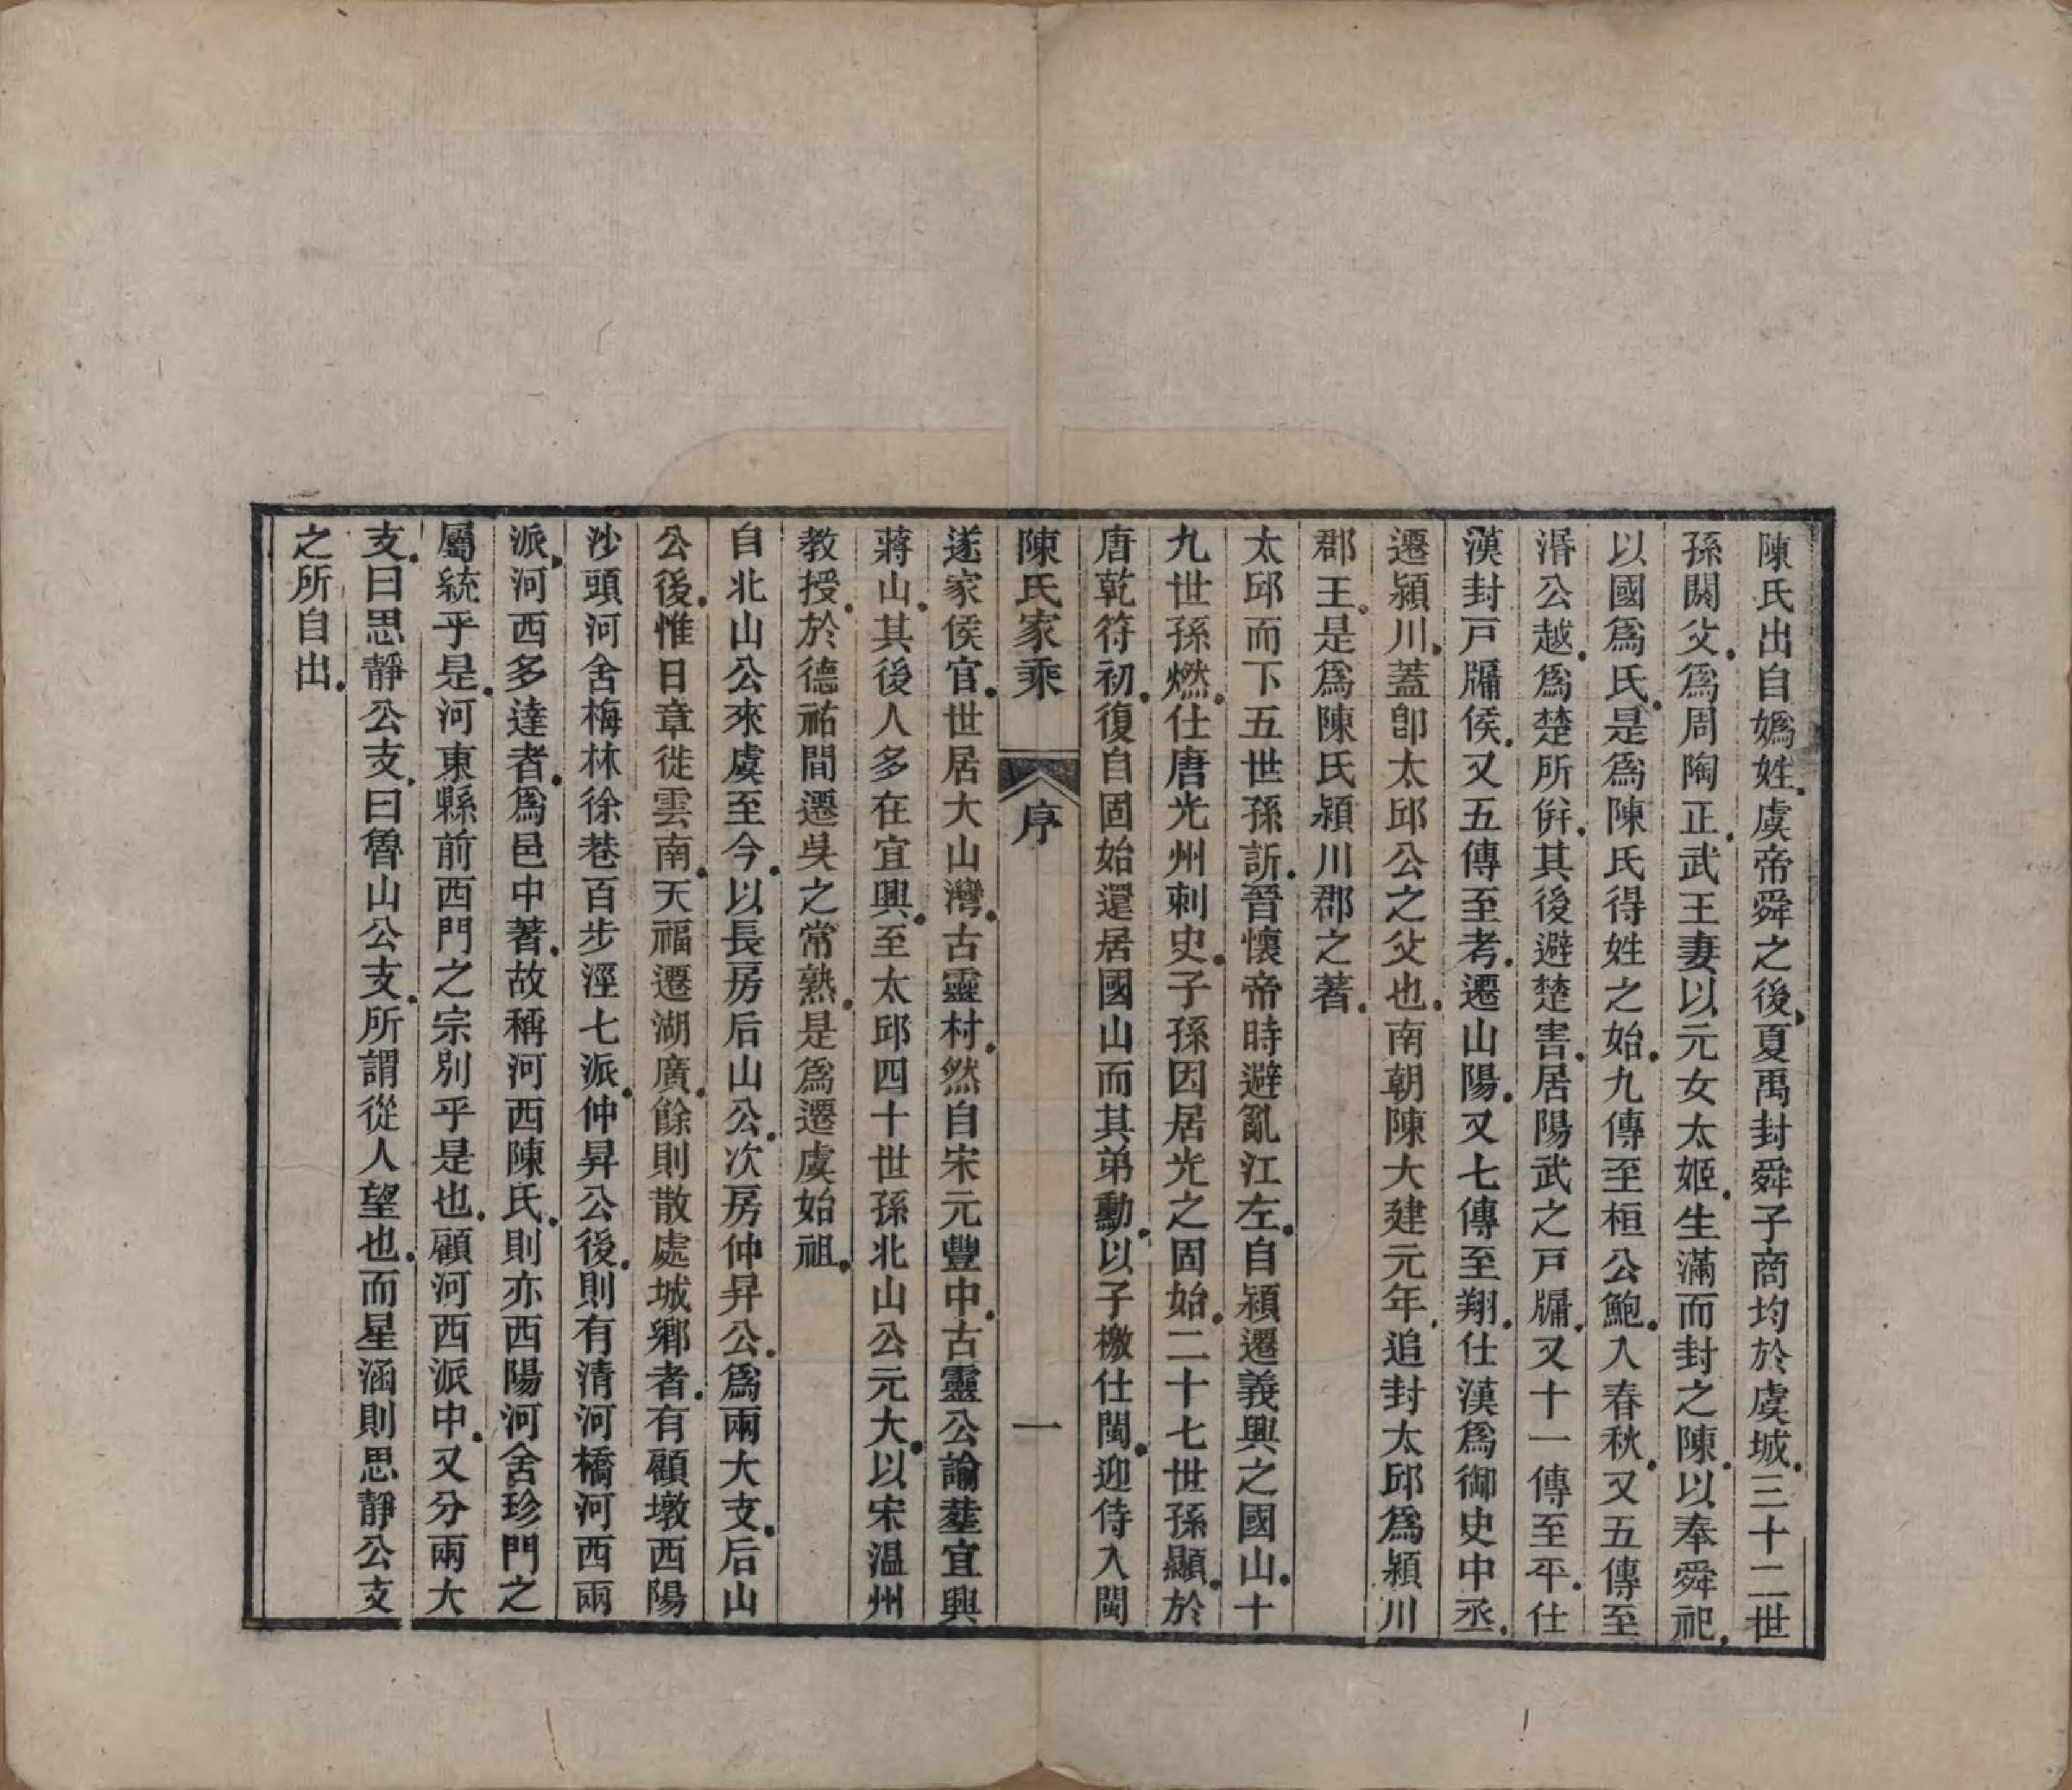 陳氏出自嬀姓虞帝舜之後夏禹封舜子商均於虞城三十二世
孫閼父爲周陶正武王妻以元女太姬生滿而封之陳以奉舜祀
以國爲氏是爲陳氏得姓之始九傳至桓公鮑入春秋又五傳至
湣公越爲楚所併其後避楚害居陽武之戸牖又十一傳至平仕
漢封戸牖侯又五傳至考遷山陽又七傳至翔仕漢爲御史中丞
遷潁川蓋卽太邱公之父也南朝陳大建元年追封太邱爲潁川
郡王是爲陳氏潁川郡之著
太邱而下五世孫訢晉懷帝時避亂江左自潁遷義興之國山十
九世孫燃仕唐光州刺史子孫因居光之固始二十七世孫顯於
唐乾符初復自固始還居國山而其弟勳以子檄仕閩迎侍入閩
陳氏家乘 序 一
遂家侯官世居大山灣古靈村然自宋元豐中古靈公諭塟宜興
蔣山其後人多在宜興至太邱四十世孫北山公元大以宋温州
教授於德祐間遷吳之常熟是爲遷虞始祖
自北山公來虞至今以長房后山公次房仲昇公爲兩大支后山
公後惟日章徙雲南天福遷湖廣餘則散處城鄉者有顧墩西陽
沙頭河舍梅林徐巷百步涇七派仲昇公後則有清河橋河西兩
派河西多達者爲邑中著故稱河西陳氏則亦西陽河舍珍門之
屬統乎是河東縣前西門之宗別乎是也顧河西派中又分兩大
支曰思靜公支曰魯山公支所謂從人望也而星涵則思靜公支
之所自出